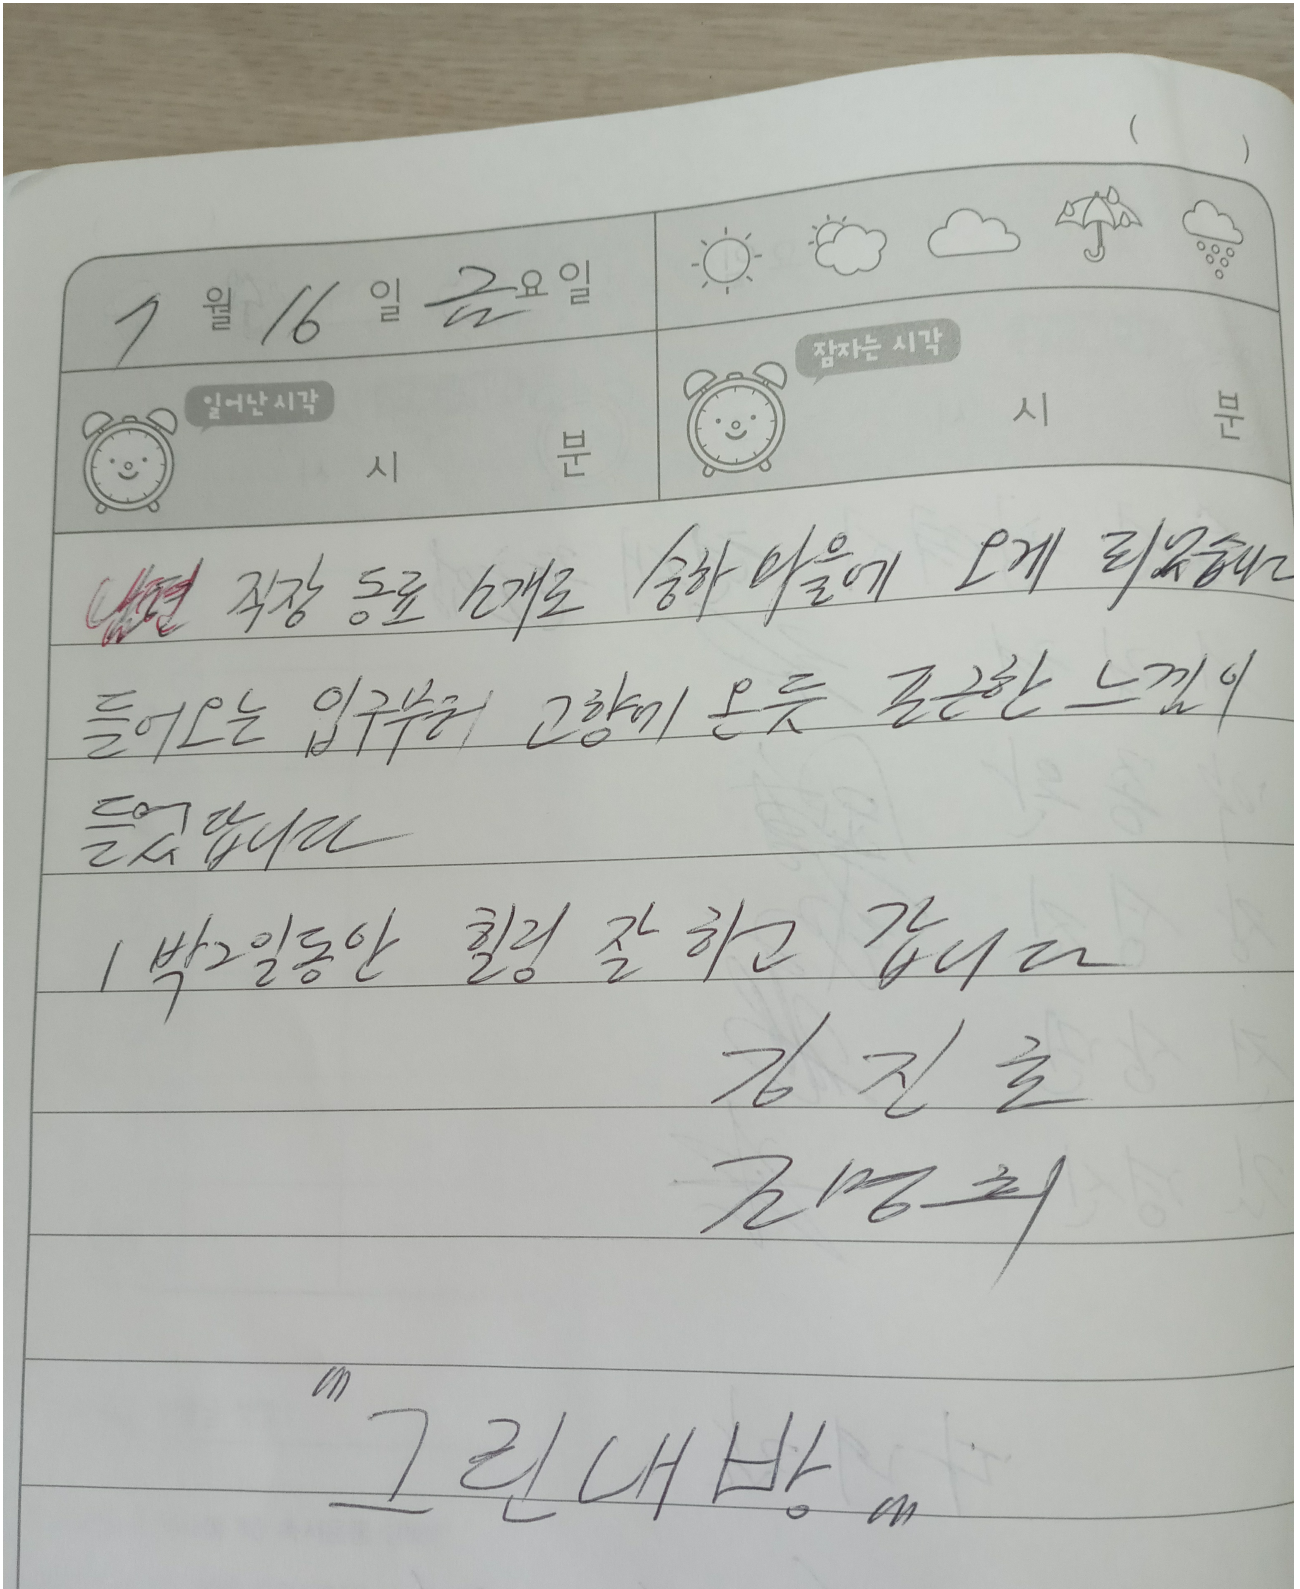 ( )
7 월 16 일 금요일
일어난 시각 시 분
잠자는 시각 시 분
남편 직장 동료 소개로 송하 마을에 오게 되었습니다
들어오는 입구부터 고향에 온듯 포근한 느낌이
들었답니다
1박2일동안 힐링 잘 하고 갑니다
김진호
조명희
"그린내방"